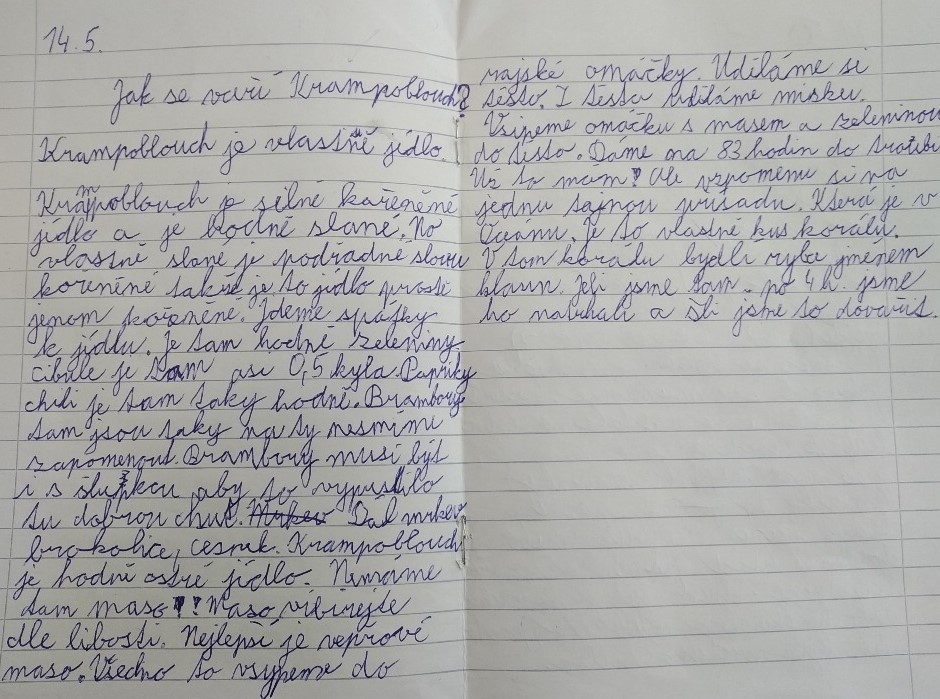 14.5.
Jak se vaří Krampoblouch?
Krampoblouch je vlastně jídlo.
Krampoblouch je silně kořeněné
jídlo a je hodně slané. No
vlastně slané je podřadné slovu
kořeněné takže je to jídlo prostě
jenom kořeněné. Jdeme spátky
k jídlu. Je tam hodně zeleniny
cibule je tam asi 0,5 kyla. Papriky
chili je tam taky hodně. Brambory
tam jsou taky na ty nesmíme
zapomenout. Brambory musí být
i s šlupkou aby to vypustilo
tu dobrou chuť. Mrkev Dal mrkev
brokolice, česnek. Krampoblouch
je hodně ostré jídlo. Nemáme
tam maso!! Maso vibírejte
dle libosti. Nejlepší je vepřové
maso. Všechno to vsypeme do
rajské omáčky. Uděláme si
těsto. I těsta uděláme misku.
Vsipeme omáčku s masem a zeleninou
do těsto. Dáme na 83 hodin do trouby.
Už to máme! Ale vzpomenu si na
jednu tajnou přísadu. Která je v
Oceánu. Je to vlastně kus korálu.
V tom korálu bydlí ryba jménem
klaun. Jeli jsme tam. po 4 h. jsme
ho nabrhali a šli jsme to dovařit.